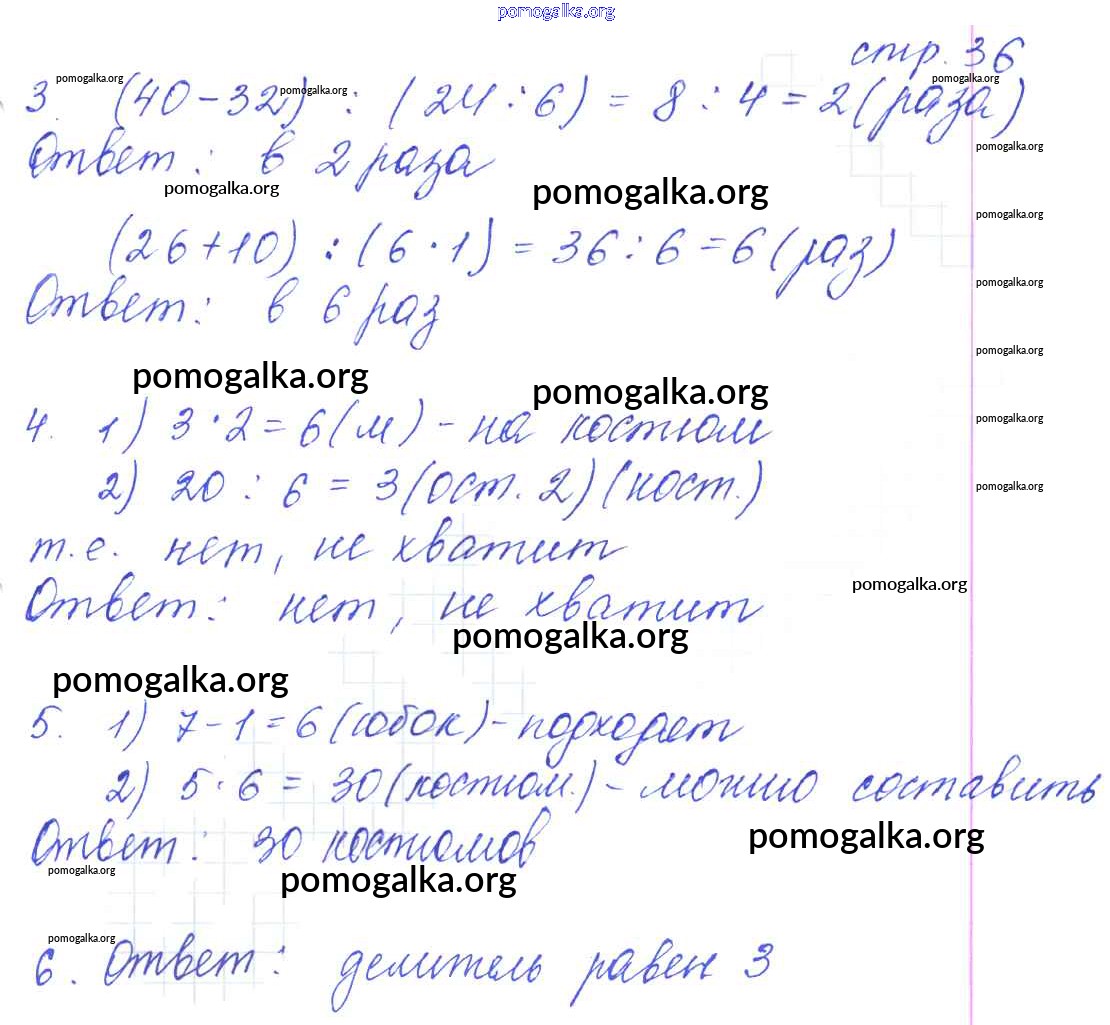 pomogalka.org
стр. 36
pomogalka.org pomogalka.org pomogalka.org
3. (40 - 32) : (24 : 6) = 8 : 4 = 2 (раза)
Ответ: в 2 раза
pomogalka.org
pomogalka.org pomogalka.org
pomogalka.org
(26 + 10) : (6 · 1) = 36 : 6 = 6 (раз)
pomogalka.org
Ответ: в 6 раз
pomogalka.org
pomogalka.org pomogalka.org
pomogalka.org
4. 1) 3 · 2 = 6 (м) - на костюм
2) 20 : 6 = 3 (ост. 2) (кост.)
pomogalka.org
т.е. нет, не хватит
pomogalka.org
Ответ: нет, не хватит
pomogalka.org
pomogalka.org
5. 1) 7 - 1 = 6 (юбок) - подходят
2) 5 · 6 = 30 (костюм.) - можно составить
Ответ: 30 костюмов
pomogalka.org
pomogalka.org pomogalka.org
pomogalka.org
6. Ответ: делитель равен 3